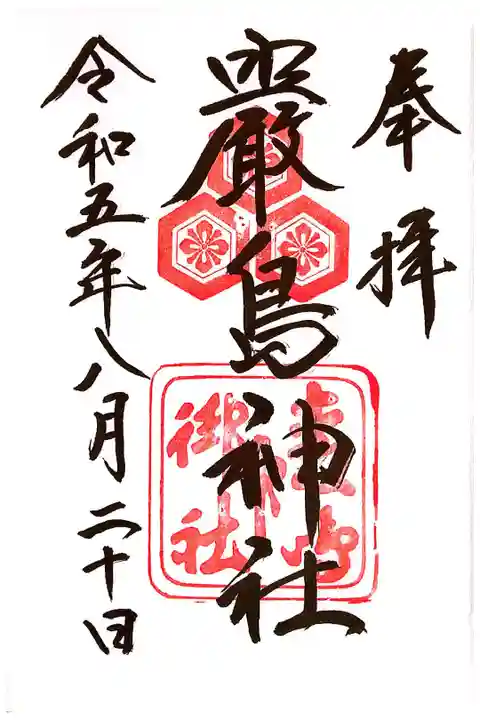 奉拝
嚴島神社
令和五年八月二十日